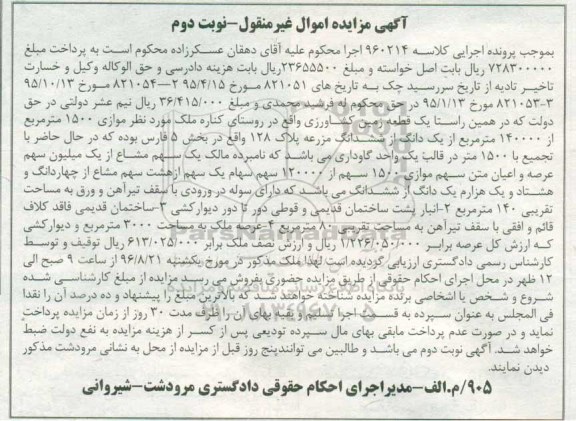 آگهی مزایده اموال غیرمنقول-نوبت دوم
بموجب پرونده اجرایی کلاسه ۹۶۰۲۱۴ اجرا محکوم علیه آقای دهقان عسکرزاده محکوم است به پرداخت مبلغ
۷۲۸۳۰۰۰۰۰ ریال بابت اصل خواسته و مبلغ ۲۳۶۵۵۵۰۰ریال بابت هزینه دادرسی و حق الوکاله وکیل و خسارت
تاخیر تادیه از تاریخ سررسید چک به تاریخ های ۸۲۱۰۵۱ مورخ ۹۵/۴/۱۵ ۲-۸۲۱۰۵۴ مورخ ۹۵/۱۰/۱۳
۳-۸۲۱۰۵۳ مورخ ۹۵/۱/۱۳ در حق محکوم له فرشید محمدی و مبلغ ۳۶/۴۱۵/۰۰۰ ریال نیم عشر دولتی در حق
دولت که در همین راستا یک قطعه زمین کشاورزی واقع در روستای کناره ملک مورد نظر موازی ۱۵۰۰ مترمربع
از ۱۴۰۰۰۰ مترمربع از یک دانگ از ششدانگ مزرعه پلاک ۱۲۸ واقع در بخش ۵ فارس بوده که در حال حاضر با
تجمیع با ۱۵۰۰ متر در قالب یک واحد گاوداری می باشد که نامبرده مالک یک سهم مشاع از یک میلیون سهم
عرصه و اعیان متن سهم موازی ۱۵۰۰ سهم از ۱۲۰۰۰۰ سهم سهام یک سهم ازهشت سهم مشاع از چهاردانگ و
هشتاد و یک هزارم یک دانگ از ششدانگ می باشد که دارای سوله در ورودی با سقف تیرآهن و ورق به مساحت
تقریبی ۱۴۰ مترمربع ۲-انبار پشت ساختمان قدیمی و قوطی دور تا دور دیوارکشی ۳-ساختمان قدیمی فاقد کلاف
قائم و افقی با سقف تیرآهن به مساحت تقریبی ۸۰ مترمربع ۴-عرصه ملک به مساحت ۳۰۰۰ مترمربع و دیوارکشی
که ارزش کل عرصه برابر ۱/۲۲۶/۰۵۰/۰۰۰ ریال و ارزش نصف ملک برابر ۶۱۳/۰۲۵/۰۰۰ ریال توقیف و توسط
کارشناس رسمی دادگستری ارزیابی گردیده است لهذا ملک مذکور در مورخ یکشنبه ۹۶/۸/۲۱ از ساعت ۹ صبح الی
۱۲ ظهر در محل اجرای احکام حقوقی از طریق مزایده حضوری بفروش می رسد مزایده از مبلغ کارشناسی شده
شروع و شخص یا اشخاصی برنده مزایده شناخته خواهند شد که بالاترین مبلغ را پیشنهاد و ده درصد آن را نقدا
فی المجلس به عنوان سپرده به قسمت اجرا تسلیم و بقیه بهای آن را ظرف مدت ۳۰ روز از زمان مزایده پرداخت
نماید و در صورت عدم پرداخت مابقی بهای مال سپرده تودیعی پس از کسر از هزینه مزایده به نفع دولت ضبط
خواهد شد. آگهی نوبت دوم می باشد و طالبین می توانندپنج روز قبل از مزایده از محل به نشانی مرودشت مذکور
دیدن نمایند.
۹۰۵/م.الف-مدیراجرای احکام حقوقی دادگستری مرودشت-شیروانی